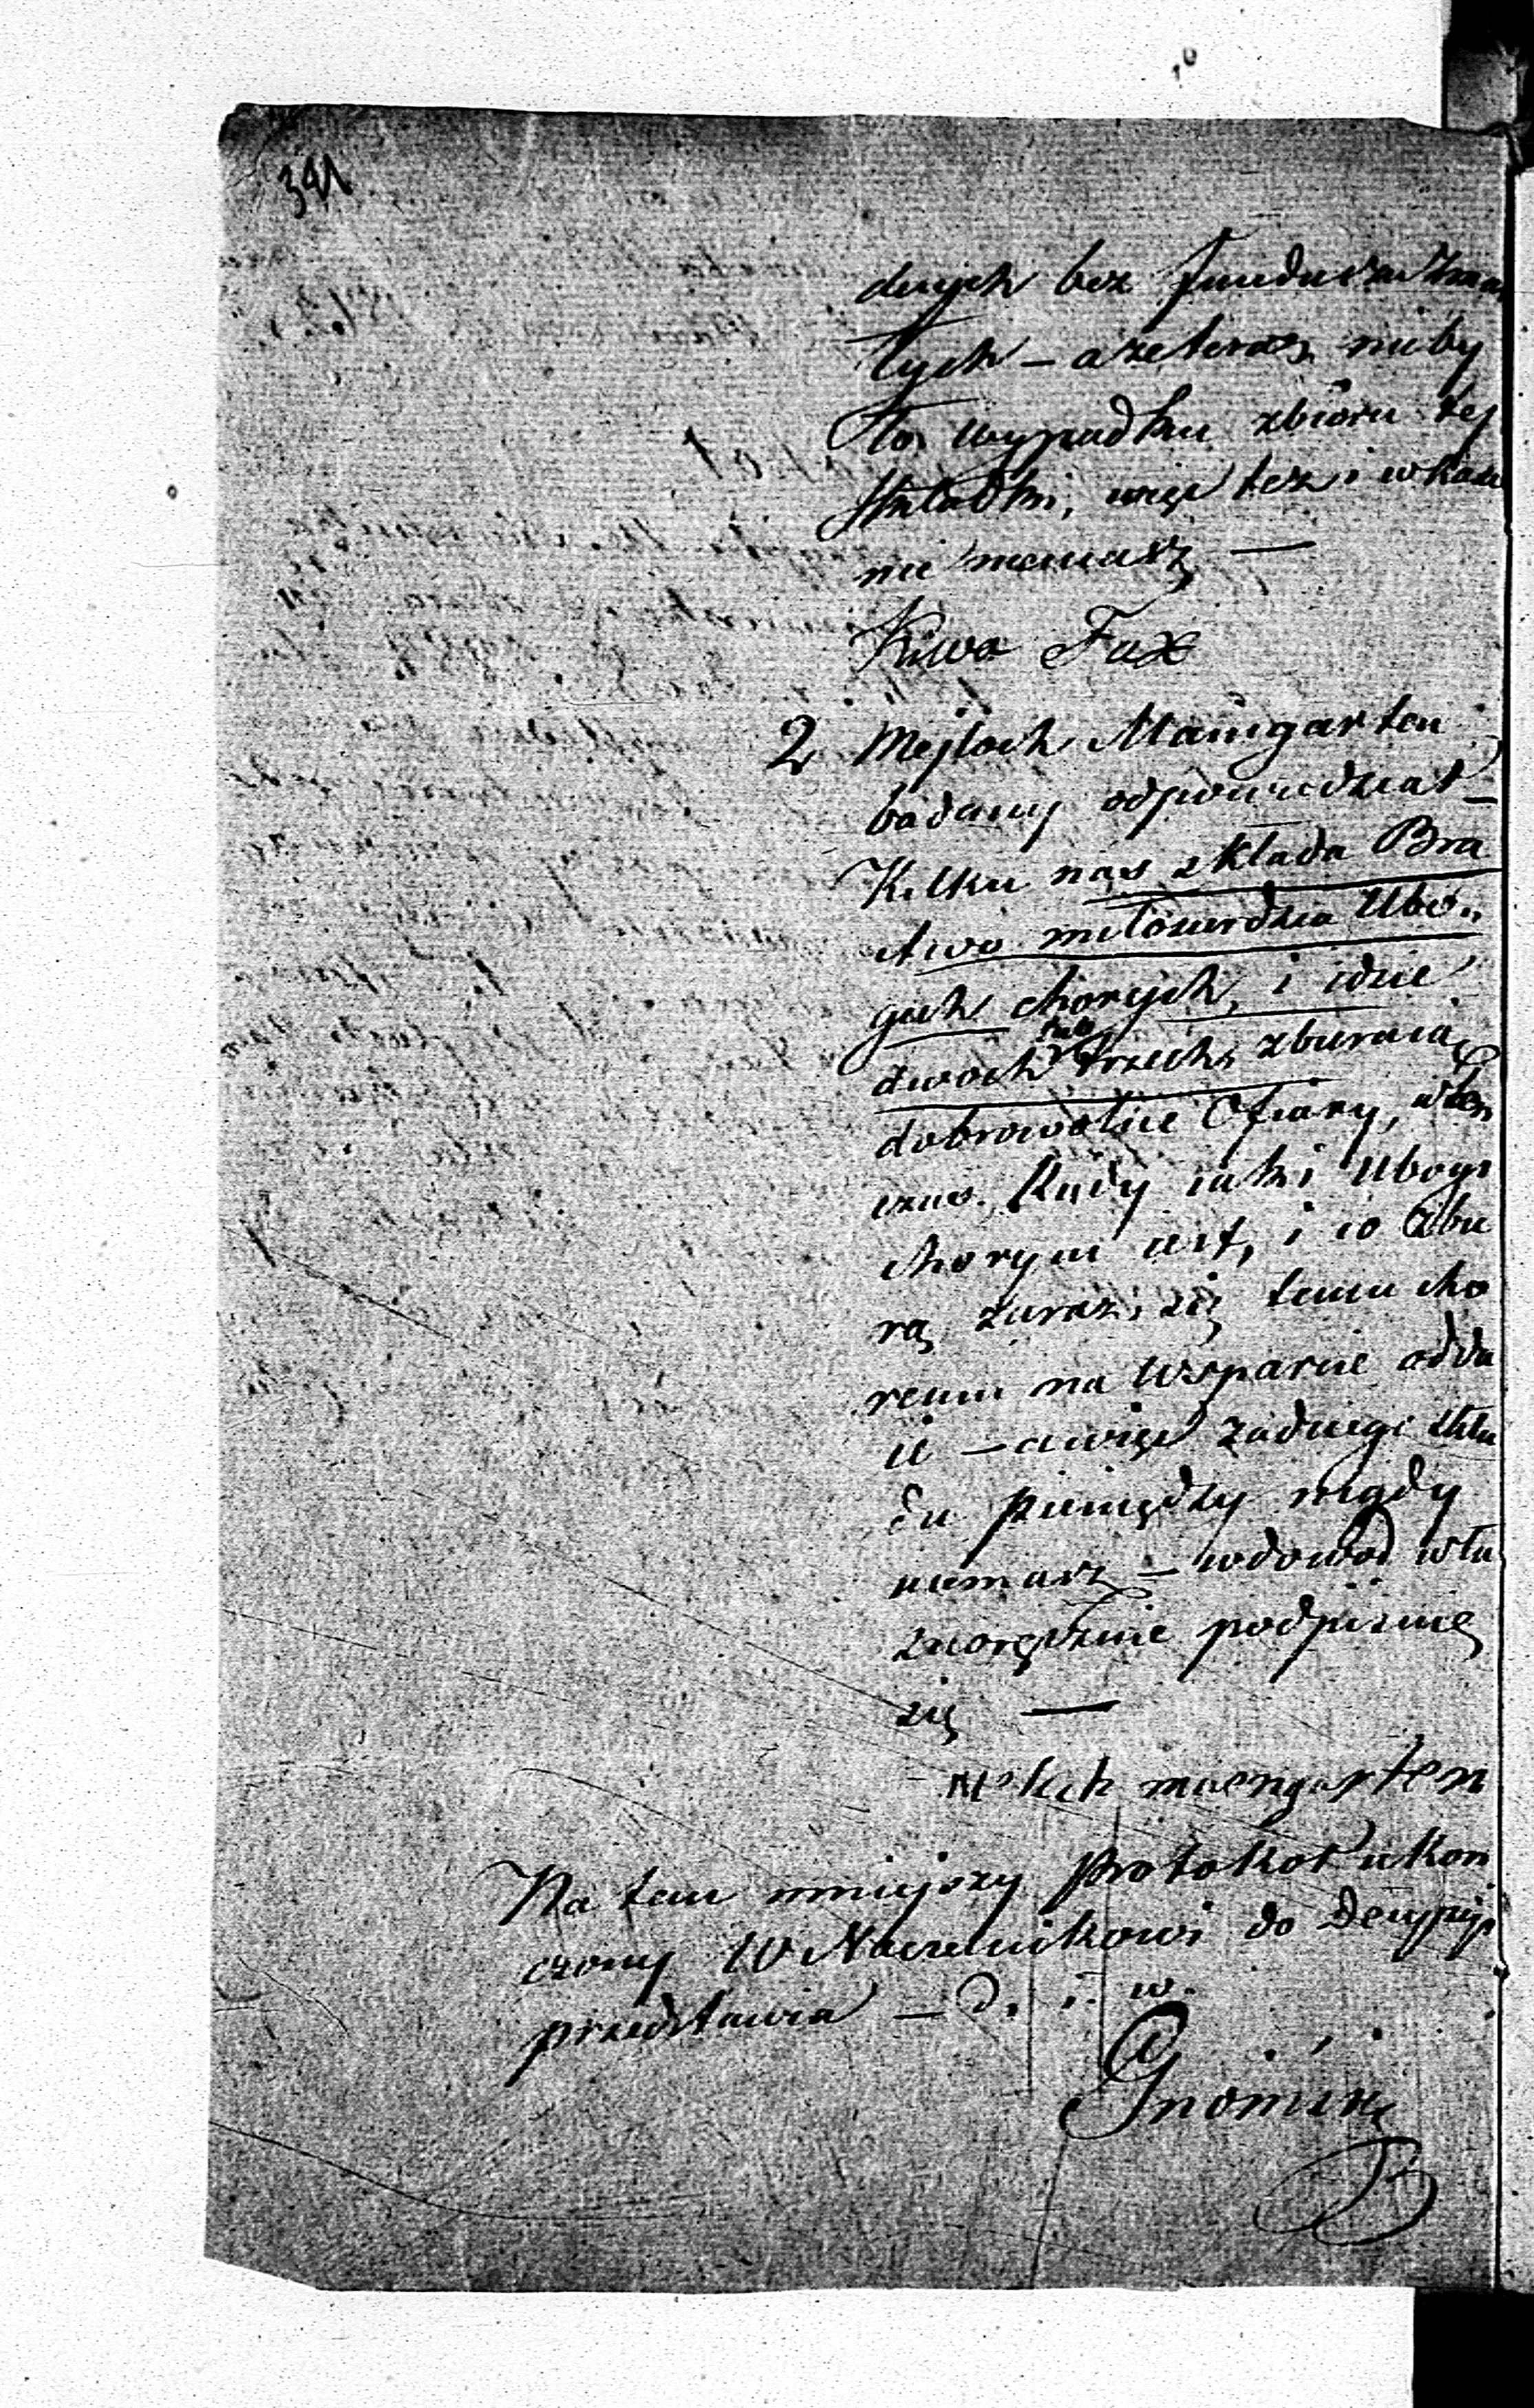 341
dnych bez funduszu zmar
łych – a że teraz nieby
ło wypadku zbioru tej
składki, więc też i w kasie
nie memasz —
Kiwa Fux
2 Mejloch Maingarten
badany odpowiedział –
Kilku nas składa Bra
ctwo miłosierdzia Ubo„
gich chorych, i idzie
dwoch lub trzech, zbieraią
dobrowolne Ofiary, w ten
czas. Kiedy iaki Ubogi
chorym iest, i co zbie
rą zaraz, się temu cho
remu na wsparcie odda
ie – a więc żadnego skła
du pieniędzy nigdy
niemasz – w dowod wła
znoręcznie podpisuię
się —
maengarten
Na tem niniejszy Protokoł ukon
czony W Naczelnikowi do Decyzyi
przedstawia – D. i. w.